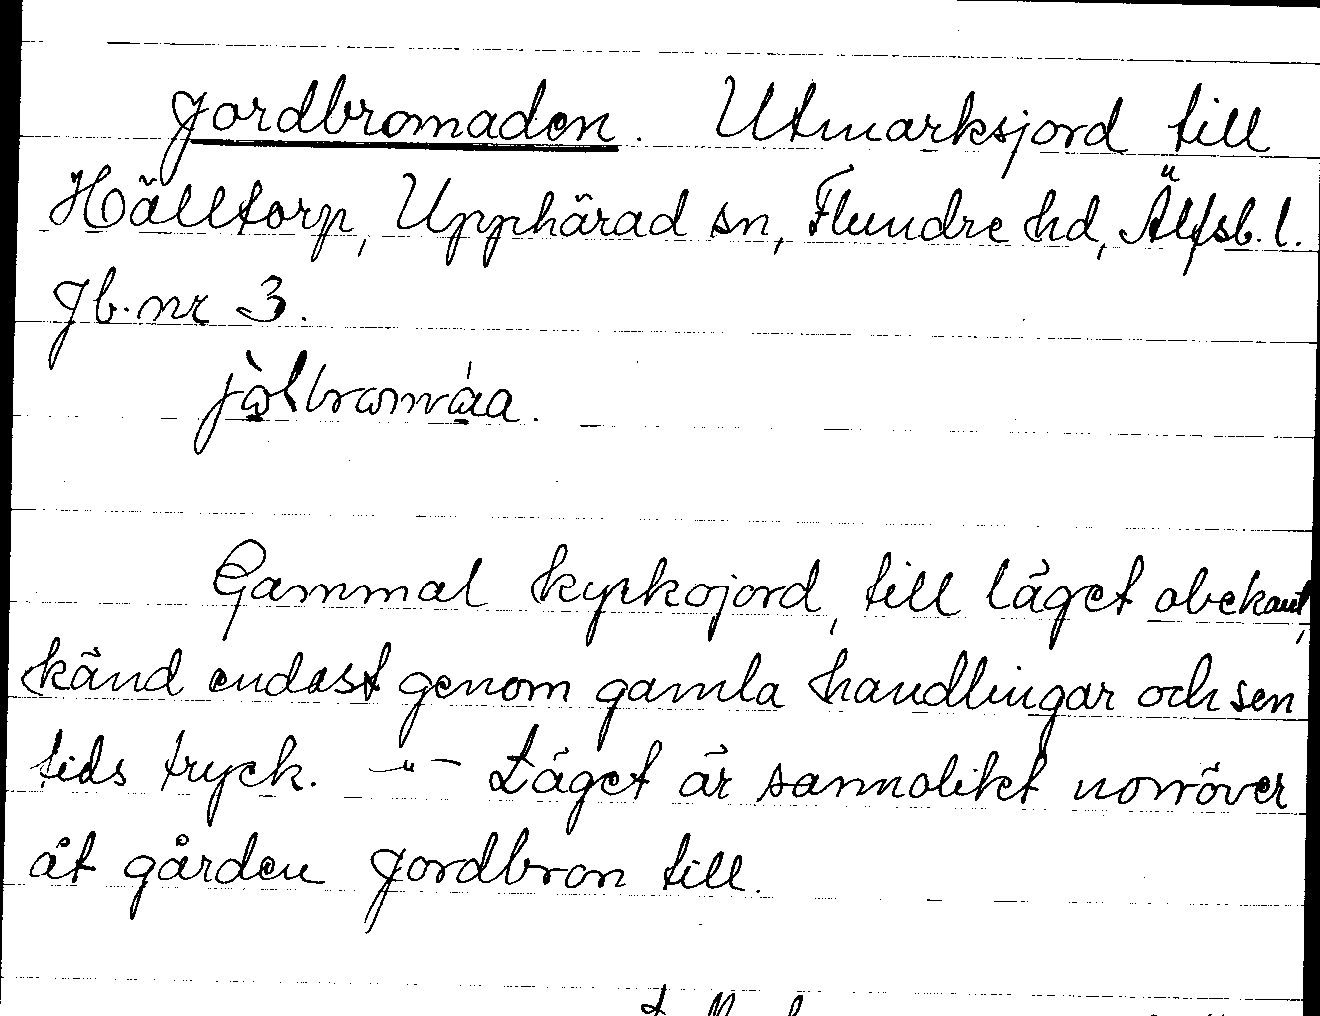 Jordbromaden. Utmarksjord till
Hälltorp, Upphärad sn, Flundre hd, Älfsb. l.
Jb. nr 3.
Gammal kyrkojord, till läget obekant,
känd endast genom gamla handlingar och sen
tids tryck. —"— Läget är sannolikt norröver
åt gården Jordbron till.